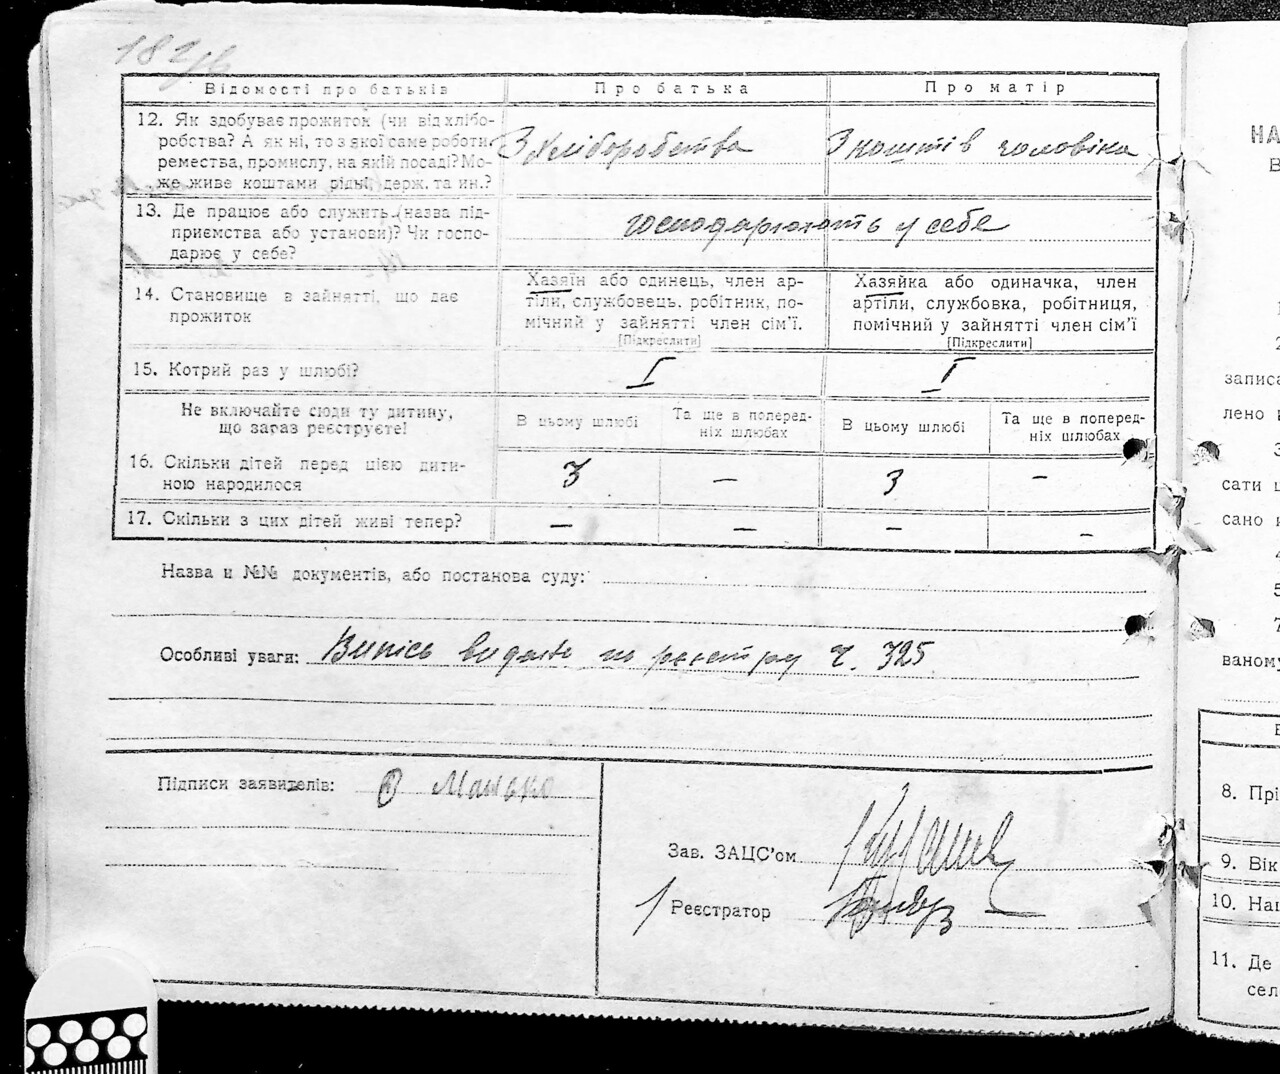 182
Відомості про батьків Про батька Про матір
12. Як здобуває прожиток (чи від хлібо-
робства? А як ні, то з якої саме роботи,
ремества, промислу, на якій посаді? Мо-
же живе коштами рідні, держ. та ин.?
З хліборобства
З коштів чоловіка
13. Де працює або служить (назва під-
приємства або установи)? Чи госпо-
дарює у себе?
господарюють у себе
14. Становище в зайнятті, що дає
прожиток
Хазяїн або одинець, член ар-
тіли, службовець, робітник, по-
мічний у зайнятті член сім'ї.
[Підкреслити]
Хазяйка або одиначка, член
артіли, службовка, робітниця,
помічний у зайнятті член сім'ї
[Підкреслити]
15. Котрий раз у шлюбі? I I
Не включайте сюди ту дитину,
що зараз реєструєте!
В цьому шлюбі
Та ще в поперед-
ніх шлюбах
В цьому шлюбі
Та ще в поперед-
ніх шлюбах
16. Скільки дітей перед цією дити-
ною народилося
3 — 3 —
17. Скільки з цих дітей живі тепер? — — — —
Назва и №№ документів, або постанова суду:
Особливі уваги: Випись видана по реєстру ч. 325
Підписи заявителів: Манько
Зав. ЗАЦС'ом
Реєстратор
НА
В
записа
лено
сати
сано
4
5
7
ваному
8. Прі
9. Вік
10. Нац
11. Де
сел